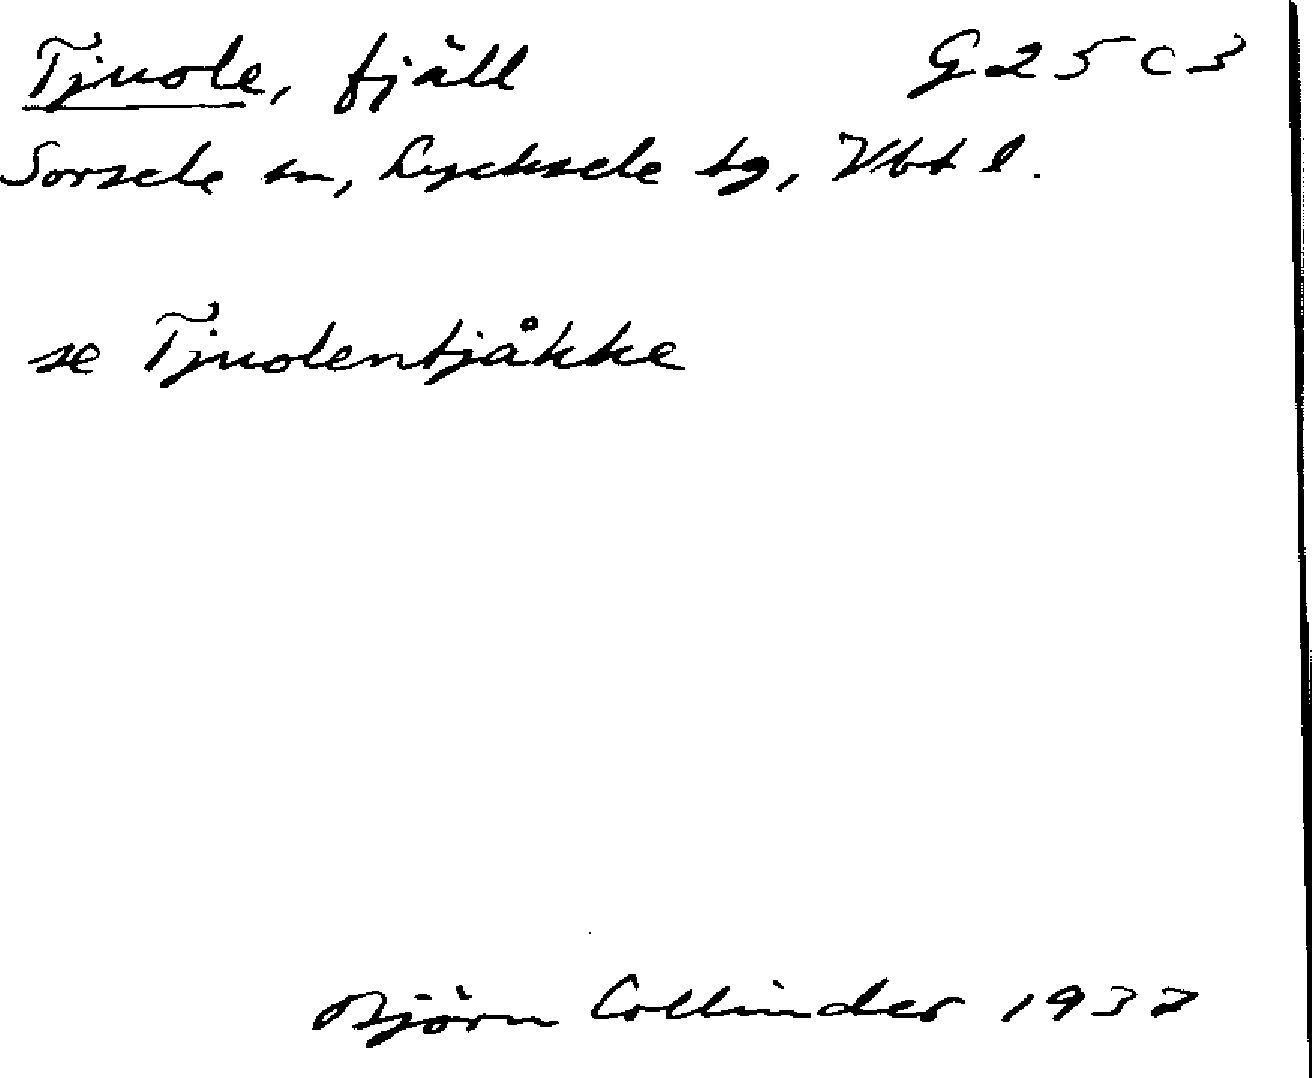 Tjuole, fjäll G25C3
Sorsele sn, Lycksele tg, Vbt l.
se Tjuolentjåkke
Björn Collinder 1937